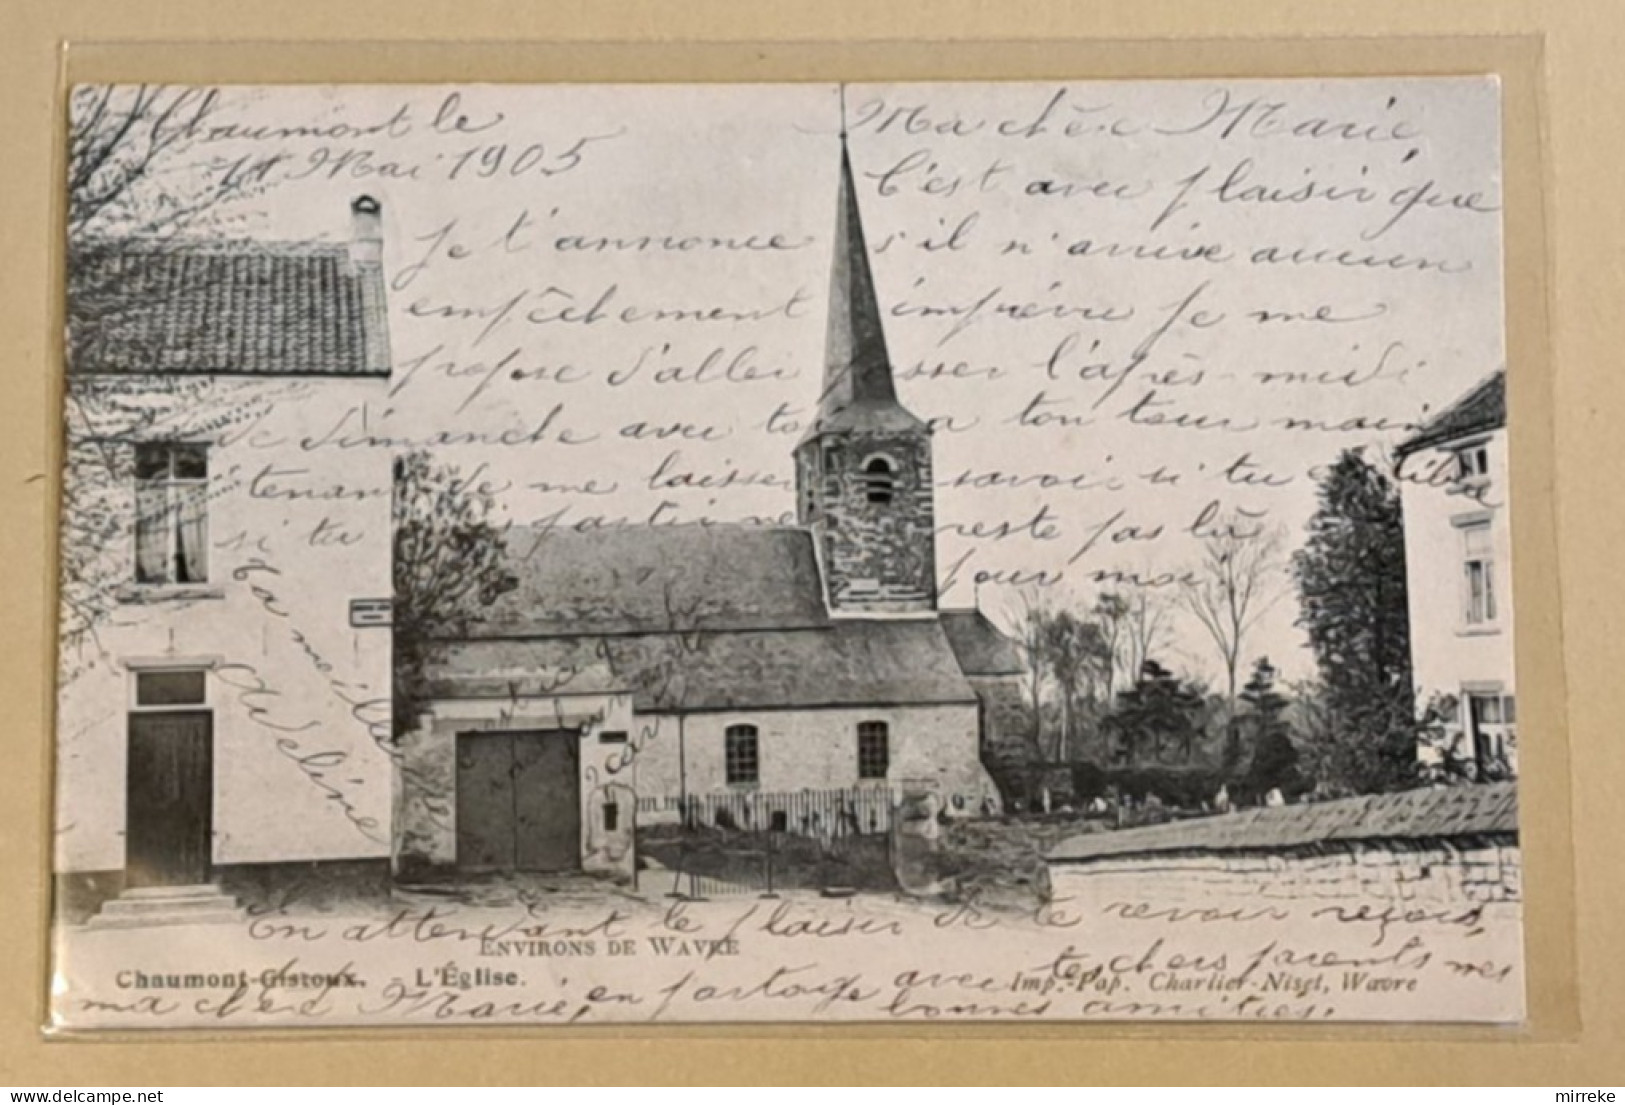 Chaumont le
11 Mai 1905
Ma chère Marie,
C'est avec plaisir que
je t'annonce s'il n'arrive aucun
empêchement imprévu je me
propose d'aller passer l'après-midi
de dimanche avec toi, a ton tour main
tenant de me laisser savoir si tu es libre
si tu pas reste pas là
pour moi
Ta meilleure
Adeline
En attendant le plaisir de te revoir reçois,
ENVIRONS DE WAVRE
tes chers parents mes
Chaumont-Gistoux. L'Église.
Imp.-Pap. Charlier-Niset, Wavre
ma chère Marie, en partage avec
bonnes amitiés.
Delcampe.net
mirreke